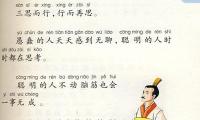 sān sī ér xíng xíng ér zài sī
三思而行，行而再思。
yú chǔn de rén tiān tiān gǎn dào wú liáo cōng míng de rén shí
愚蠢的人天天感到无聊，聪明的人时
shí dōu zài sī kǎo
时都在思考。
cōng míng de rén bú dòng nǎo jīn yě huì
聪明的人不动脑筋也会
yí shì wú chéng
一事无成。